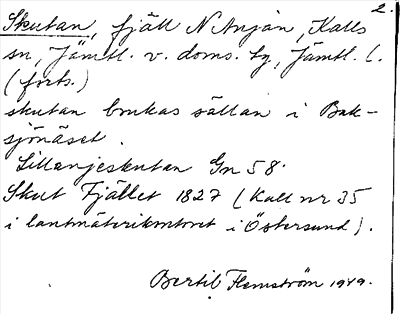 2.
Skutan, fjäll N Anjan, Kalls
sn, Jämtl. v. doms. tg, Jämtl. l.
(forts.)
skutan brukas sällan i Bak-
sjönäset.
Lillanjeskutan Gn 58.
Skut Fjället 1827 (Kall nr 35
i lantmäterikontoret i Östersund).
Bertil Flemström 1949.